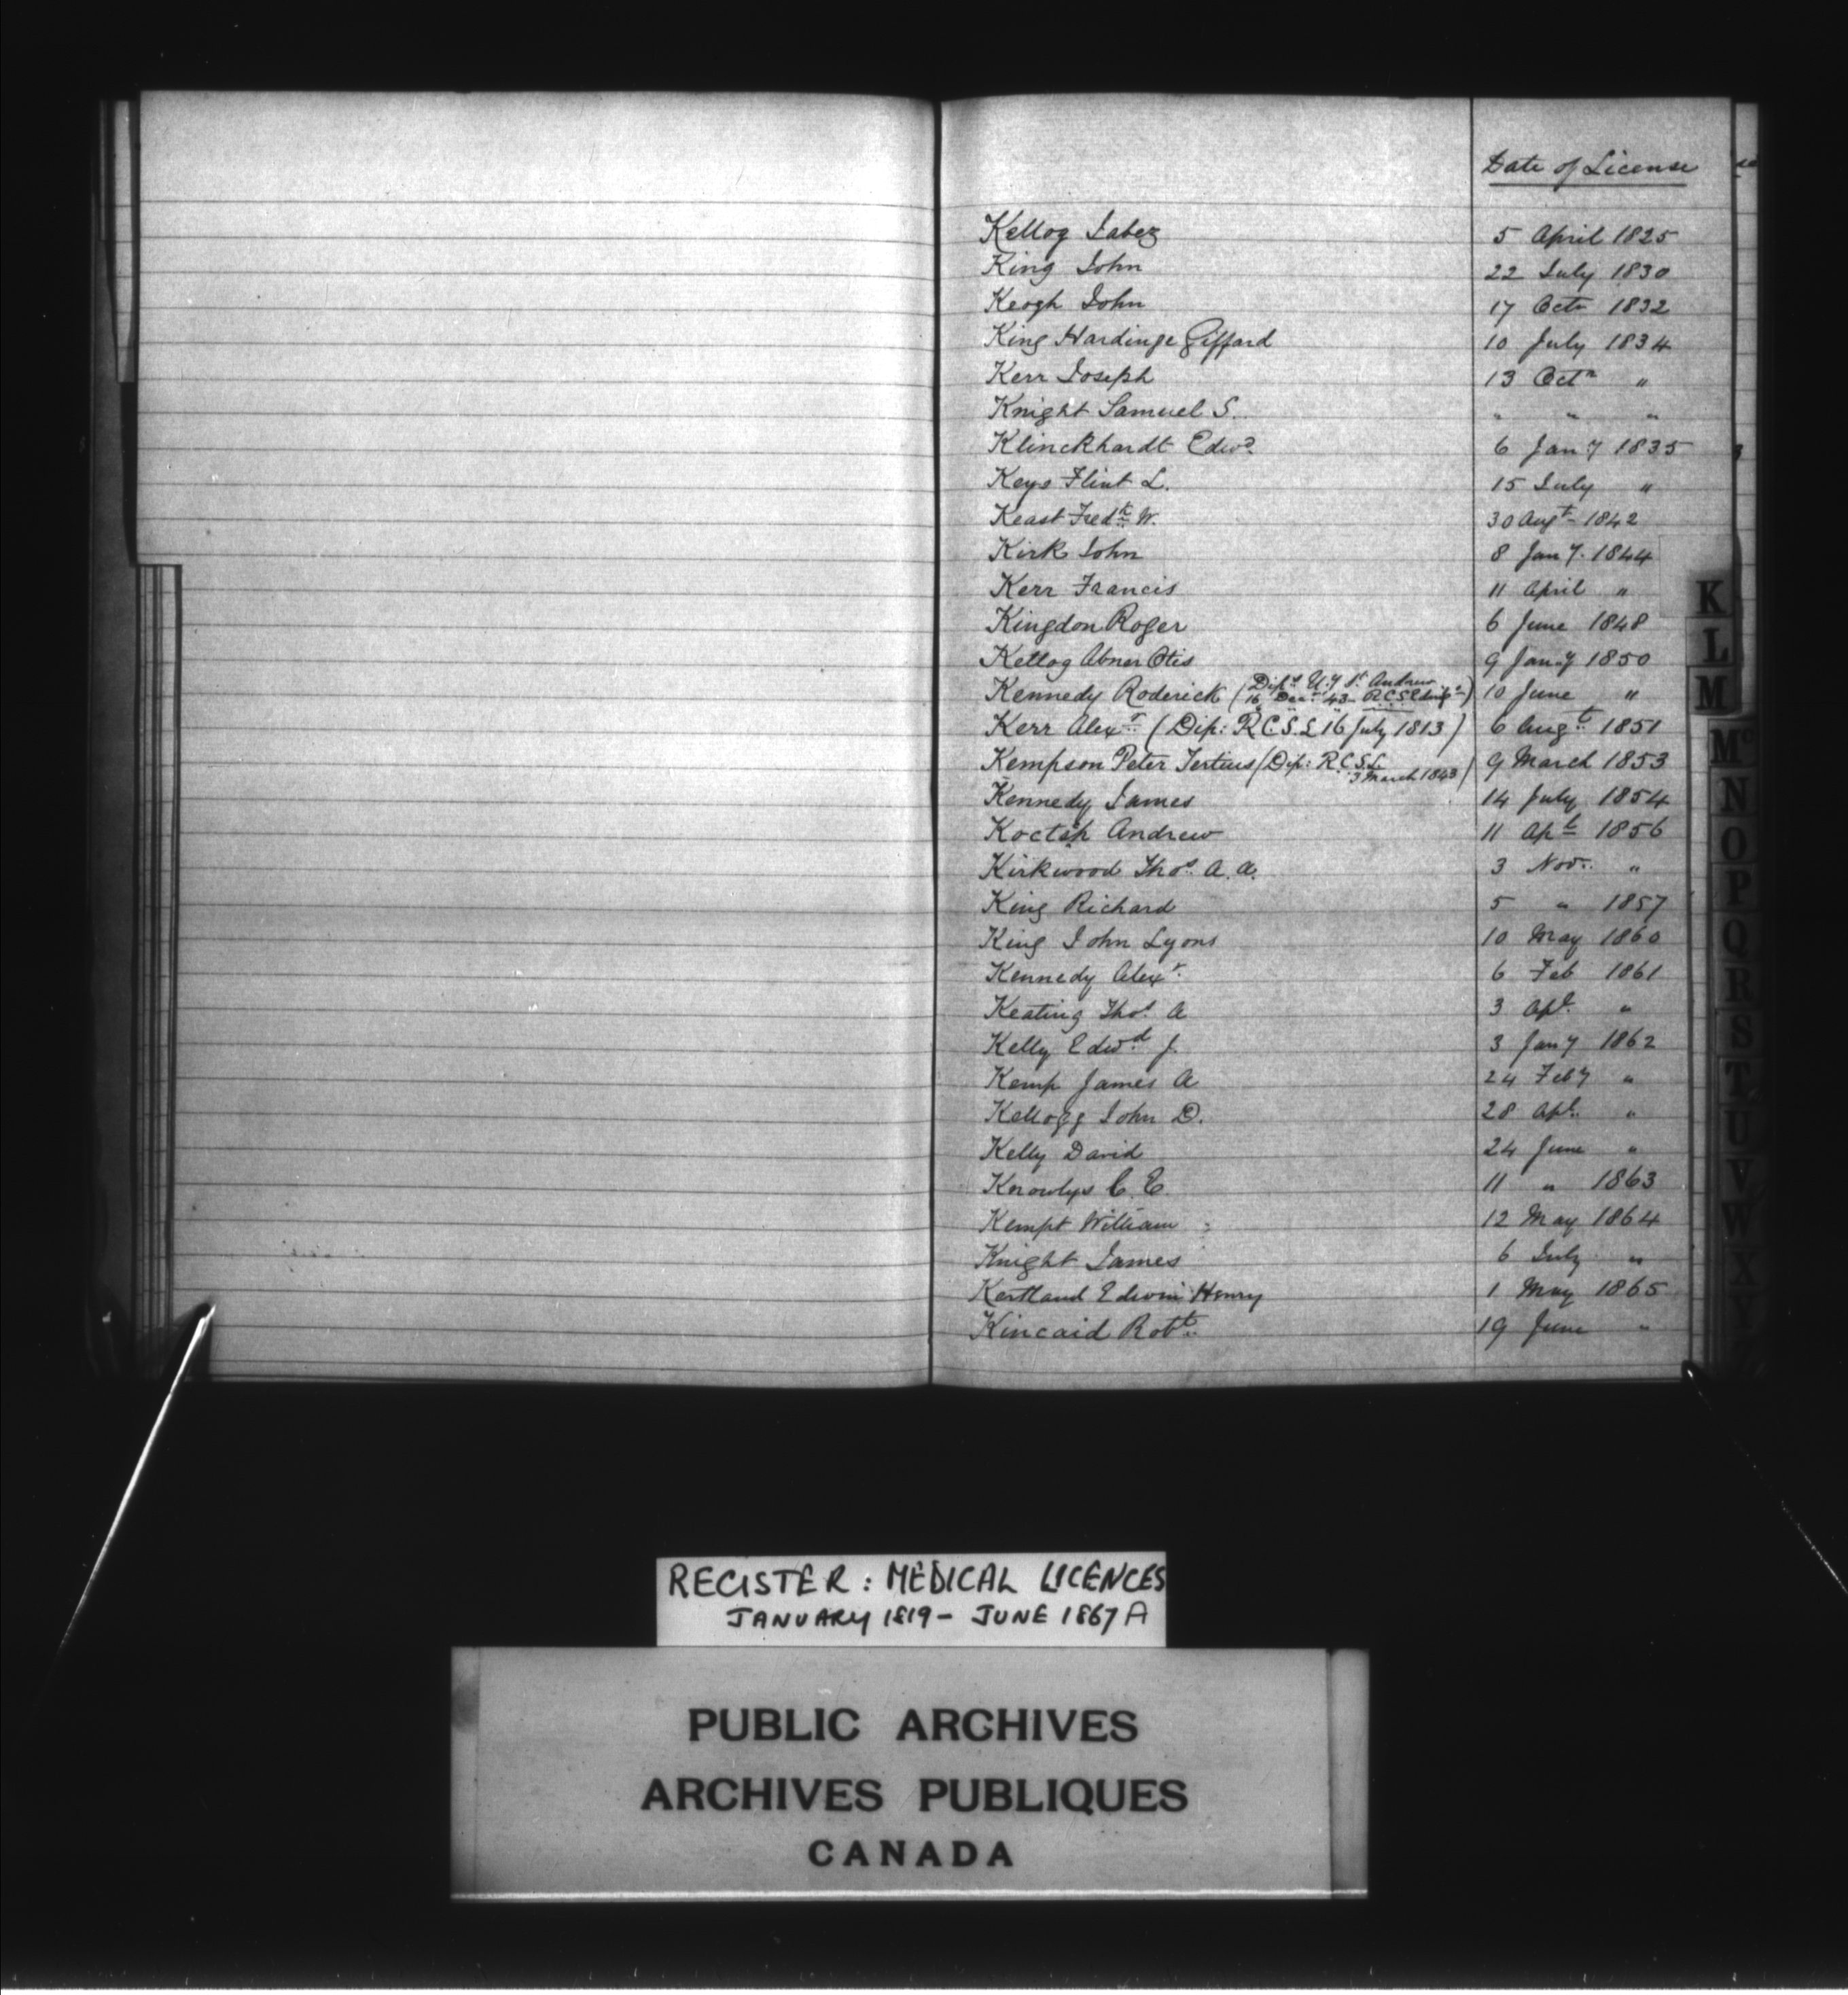 Date of License
Kellog Jabez 5 April 1825
King John 22 July 1830
Keogh John 17 Octr 1832
King Hardinge Giffard 10 July 1834
Kerr Joseph 13 Octr "
Knight Samuel S. " " "
Klinckhardt Edwd. 6 Jany 1835
Keys Flint L. 15 July "
Keast Fredk W. 30 Augt 1842
Kirk John 8 Jany. 1844
Kerr Francis 11 April "
Kingdon Roger 6 June 1848
Kellog Abner Otis 9 Jany 1850
Kennedy Roderick (Dips Uy St Andrew 16 Decr 43 - R.C.S. Eding) 10 June "
Kerr Alexr (Dip: R.C.S.L 16 July 1813) 6 Augt. 1851
Kempson Peter Tertius (Dip: R.C.S.L 3 March 1843) 9 March 1853
Kennedy James 14 July 1854
Andrew 11 Apl 1856
Kirkwood Thos. A. A. 3 Nov. "
King Richard 5 " 1857
King John Lyons 10 May 1860
Kennedy Alexr. 6 Feb 1861
Keating Thos. A 3 Apl. "
Kelly Edwd. J. 3 Jany 1862
Kemp James A 24 Feby "
Kellogg John D. 28 Apl. "
Kelly David 24 June "
Knowlys C. E. 11 " 1863
Kempt William 12 May 1864
Knight James 6 July "
Kertland Edwin Henry 1 May 1865
Kincaid Robt. 19 June "
K
L
M
Mc
N
O
P
Q
R
S
T
U
V
W
X
Y
REGISTER: MEDICAL LICENCES
JANUARY 1819 - JUNE 1867 A
PUBLIC ARCHIVES
ARCHIVES PUBLIQUES
CANADA